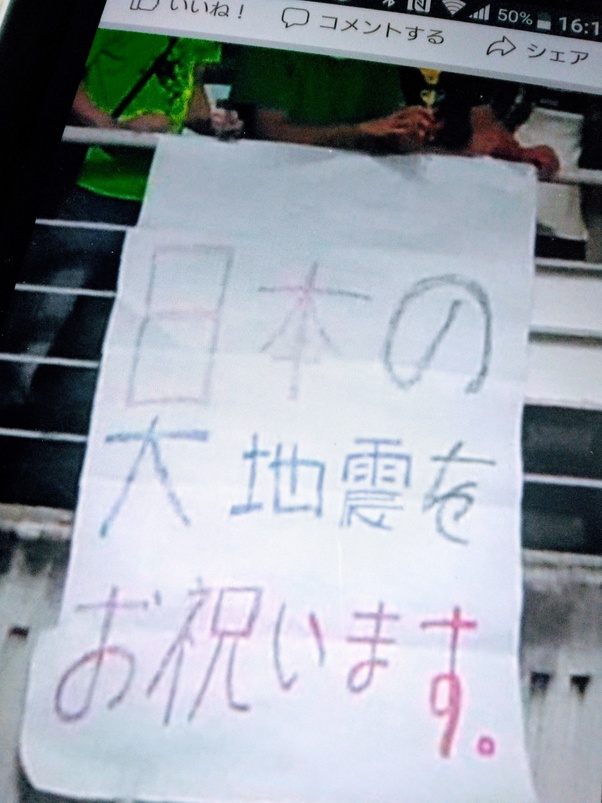 いいね! コメントする シェア
50% 16:1
日本の
大地震を
お祝います。